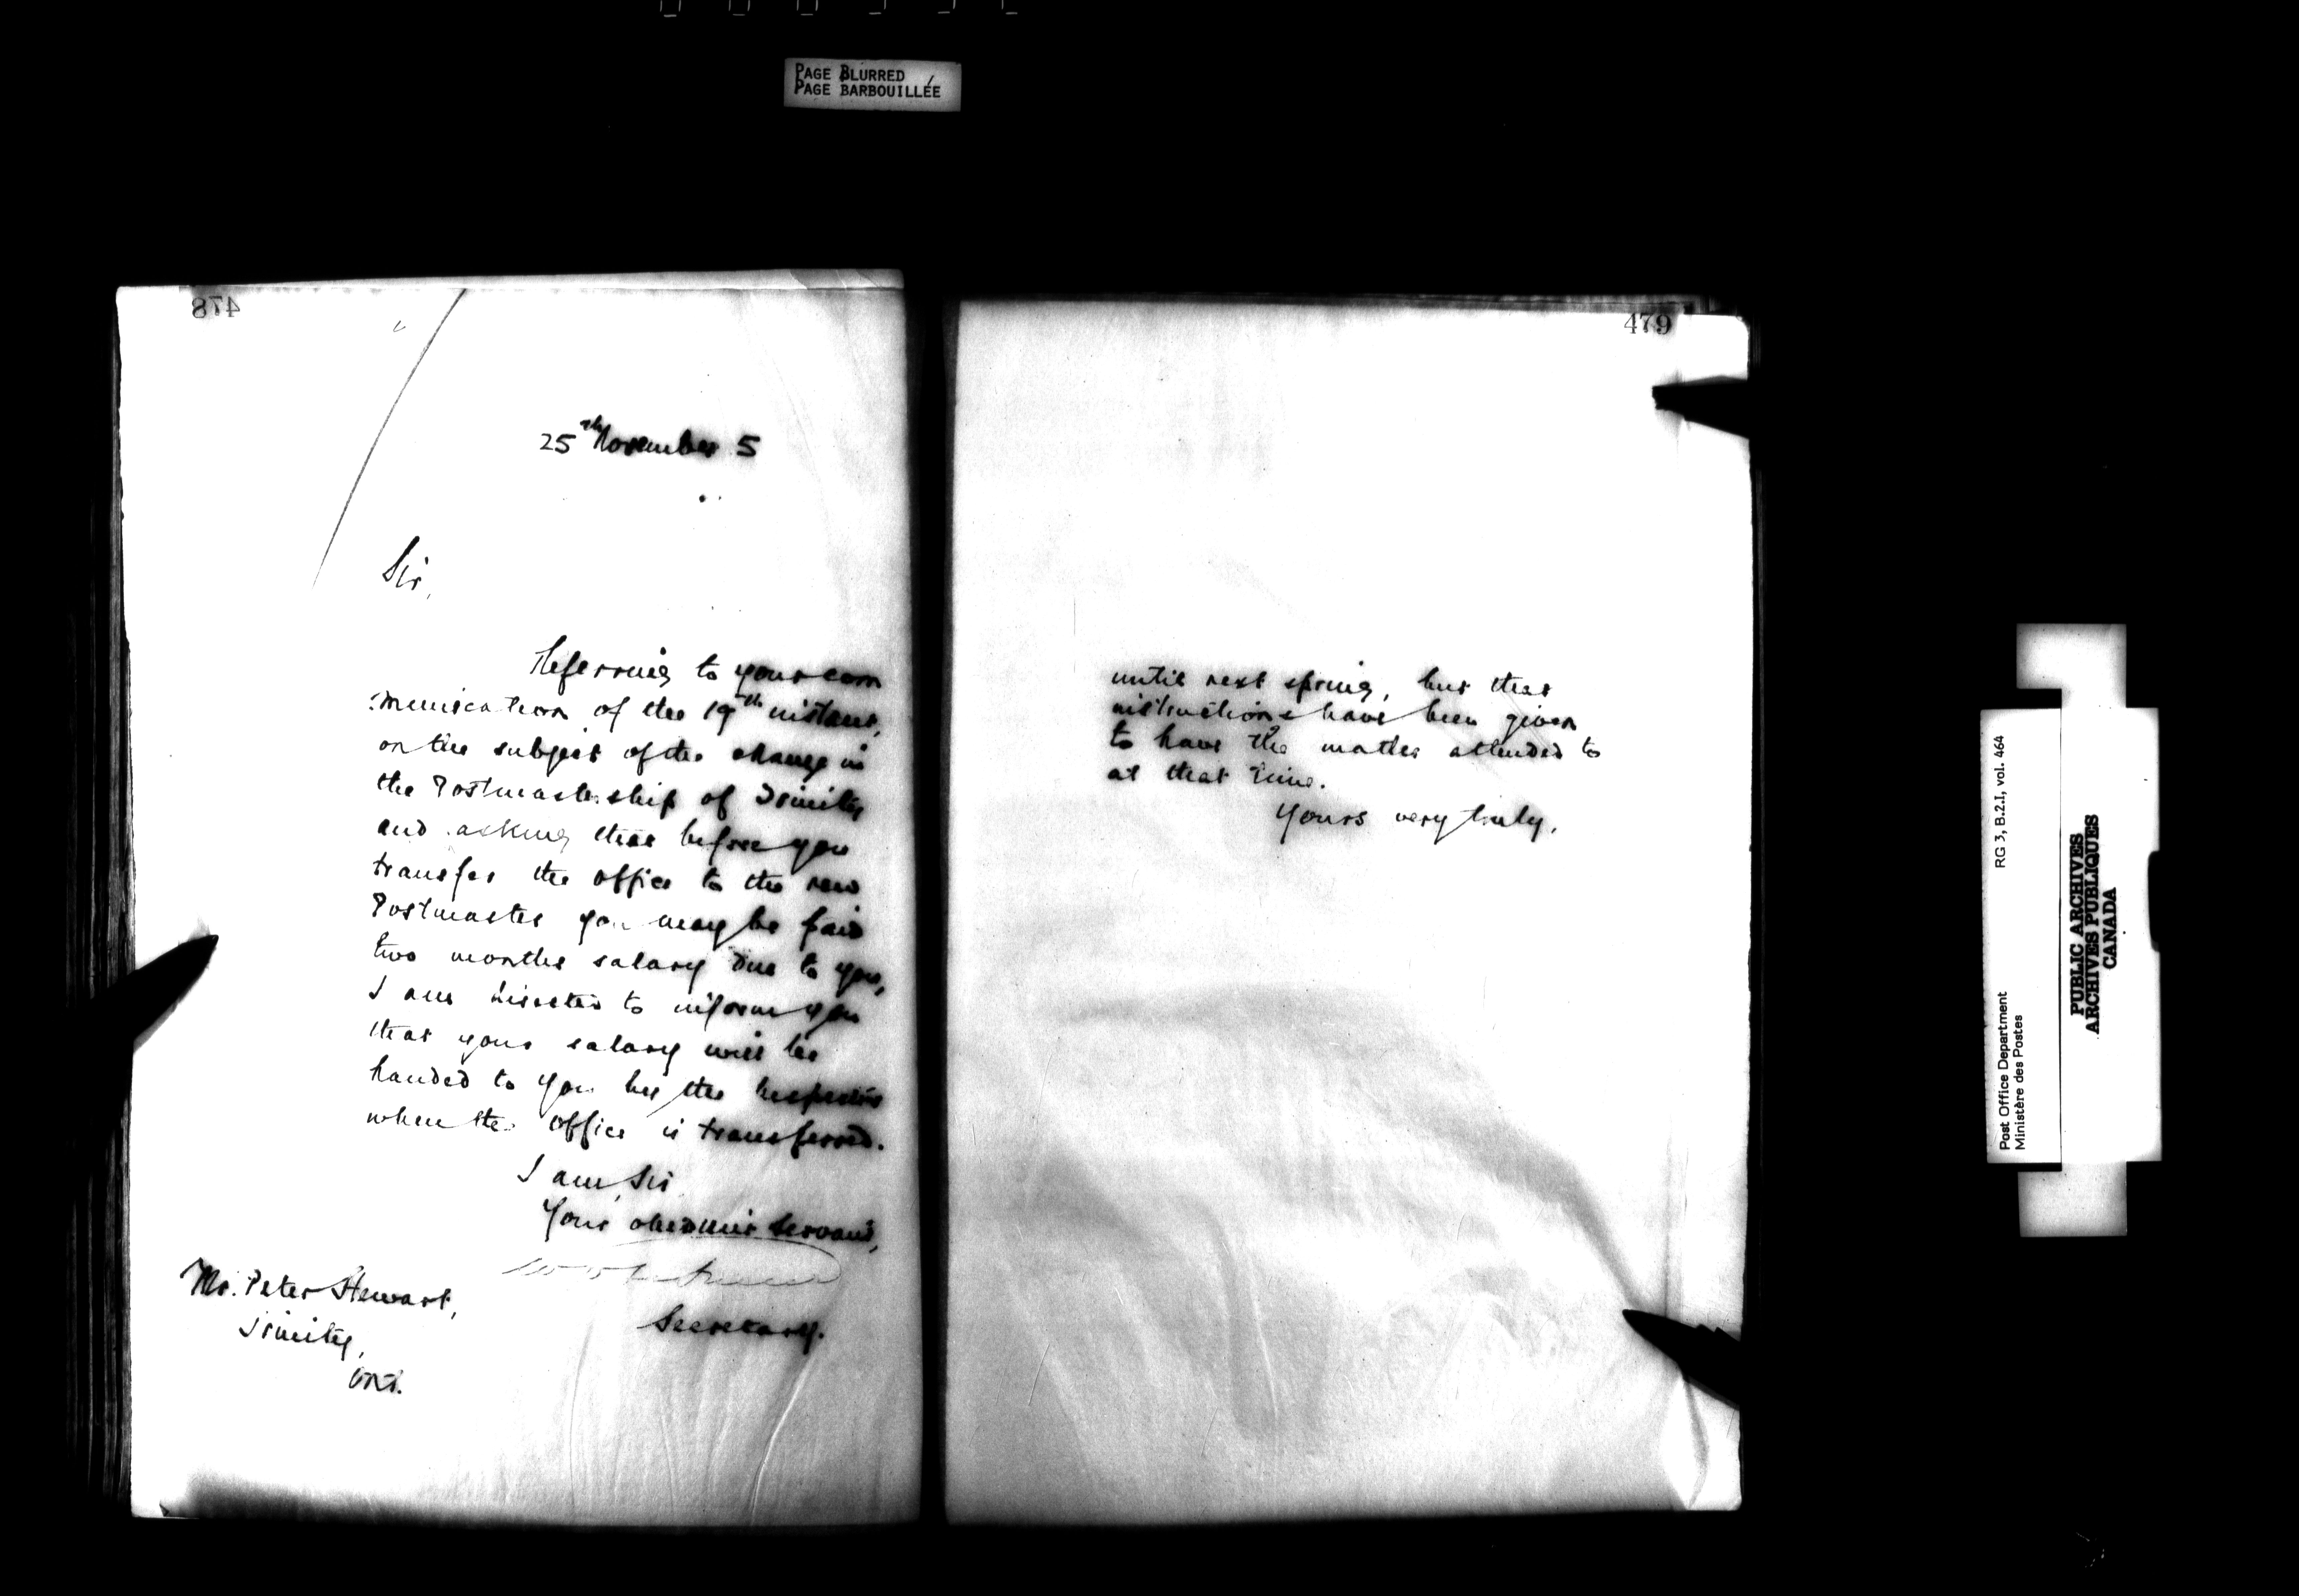 PAGE BLURRED
PAGE BARBOUILLÉE
478
25th November 5
Sir,
Referring to your com
:munication of the 19th instant,
on the subject of the change in
the Postmastership of Trinity
and asking that before you
transfer the office to the new
Postmaster you may be paid
two months salary due to you,
I am directed to inform you
that your salary will be
handed to you by the Inspector
when the office is transferred.
I am, Sir
Your obedient servant,
Secretary.
Mr. Peter Stewart,
Trinity,
Ont.
479
until next spring, but that
instructions have been given
to have the matter attended to
at that time.
Yours very truly,
Post Office Department
Ministère des Postes
RG 3, B.2.I, vol. 464
PUBLIC ARCHIVES
ARCHIVES PUBLIQUES
CANADA